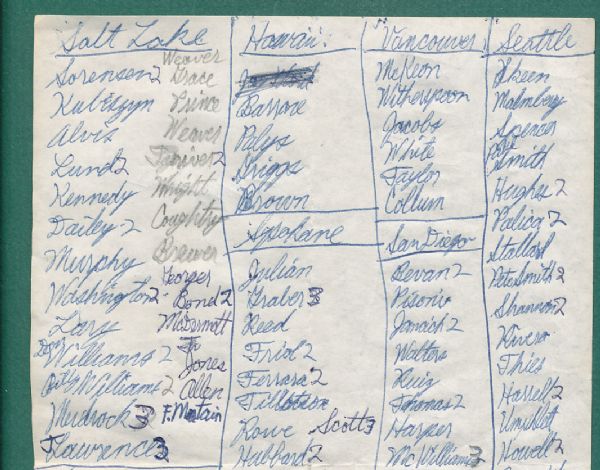 Salt Lake
Weaver
Sorensen 2 Grace
Kubiszyn Prince
Alvis Weaver
Lund 2
Kennedy Wright
Dailey 2 Coughtry
Murphy Brewer
Washington 2 George
Bond 2
Lary McDermott
Dog Williams 2 Jr
Jones
Billy Williams 2 Allen
Murdock 3 F. Mertain
Lawrence 3
Hawaii:
Barrone
Palys
Griggs
Brown
Spokane
Julian
Graber 3
Reed
Friol 2
Ferrara 2
Tillotson
Rowe Scott 3
Hubbard 2
Vancouver
McKeon
Witherspoon
Jacobs
White
Taylor
Collum
San Diego
Bevan 2
Pisoni
Janich 2
Walters
Ruiz
Thomas 2
Harper
McWilliams 3
Seattle
Skeen
Malmberg
Spencer
Smith
Hughes 2
Palica 2
Stallard
Pete Smith 2
Shannon 2
Rivero
Thies
Harrell 2
Howell 2